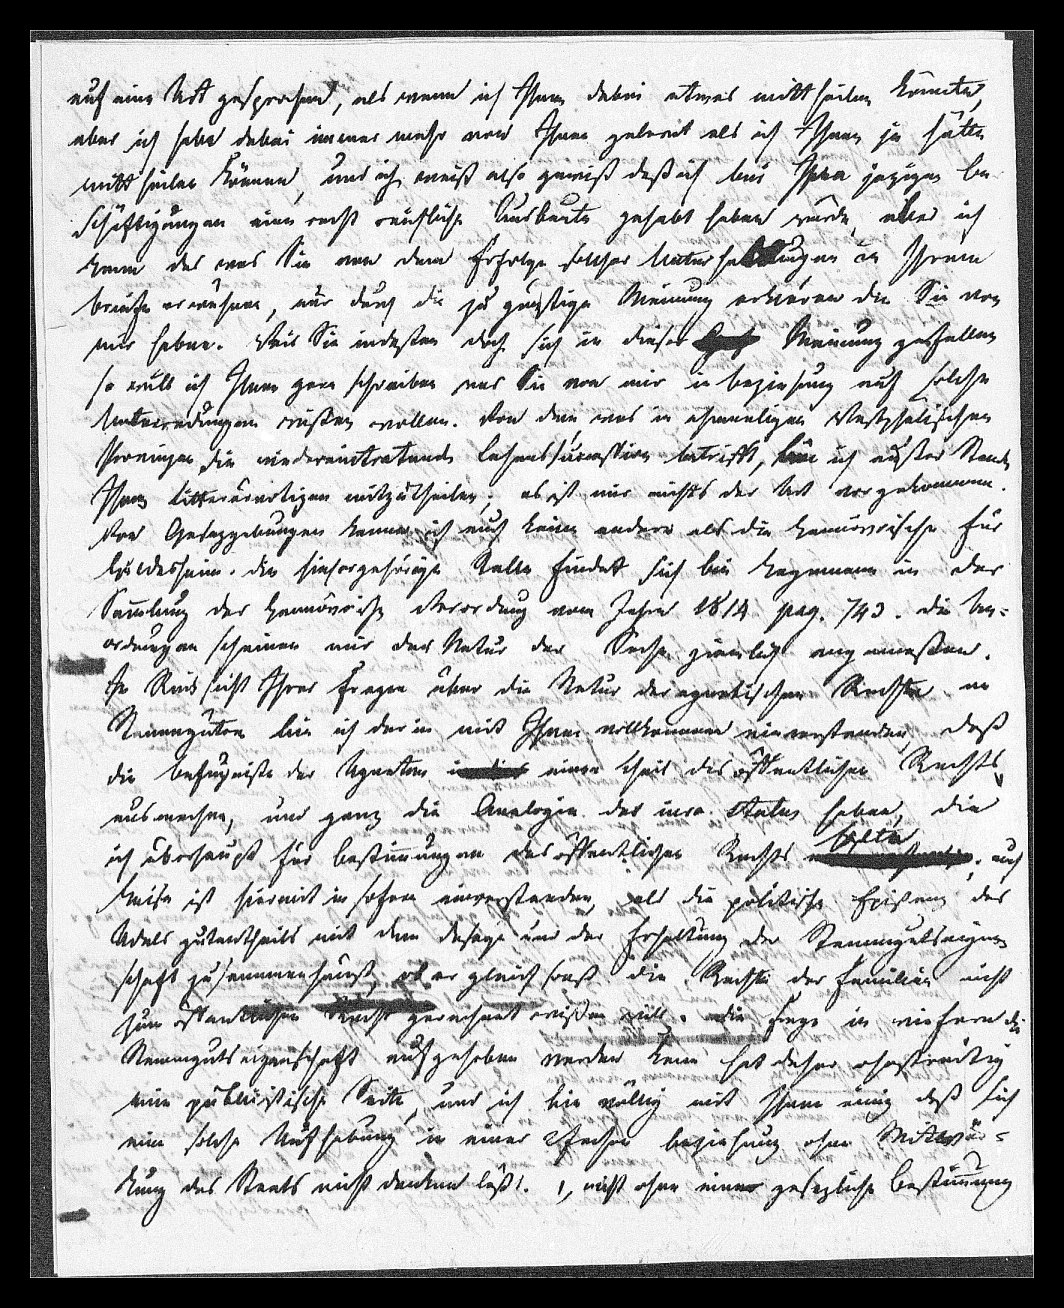 auf eine Art gesprochen, als wenn ich Ihnen dabei etwas mittheilen könnte,
aber ich habe dabei immer mehr von Ihnen gelernt als ich Ihnen je hätte
mittheilen können, und ich weiß also gewiß daß ich bei Ihren jezigen Be-
schäftigungen eine recht reichliche Ausbeute gehabt haben würde, aber ich
kann das was Sie von dem Erfolge solcher Unterhaltungen in Ihrem
Briefe erwähnen, nur durch die zu günstige Meinung erklären die Sie von
mir haben. Weil Sie indessen doch sich in dieser Meinung gefallen
so will ich Ihnen gern schreiben was Sie von mir in beziehung auf solche
Unterredungen wissen wollen. Von dem was in ehemaligen Westphälischen
Provinzen die wiedereintretende Lehnssuccession betrifft, bin ich außer Stande
Ihnen litterärartigen mitzutheilen; es ist mir nichts der Art vorgekommen.
Von Gesezgebungen kenne ich auch keine andere als die Hannövrische für
Hildesheim. die hierhergehörige Stelle findet sich bei Hagemann in der
Samlung der Hannövrischen Verordnung vom Jahre 1814 pag. 743. die Ver-
ordnungen scheinen mir der Natur der Sache ziemlich angemessen.
In Rücksicht Ihrer Fragen über die Natur der agnatischen Rechte an
Stammgütern bin ich darin mit Ihnen vollkommen einverstanden, daß
die Befugnisse der Agnaten einen theil des öffentlichen Rechts
ausmachen, und ganz die Analogie der iura status haben, die
ich überhaupt für Bestimmungen des öffentlichen Rechts halte; auch
ist hiermit in sofern einverstanden, als die politische Existenz des
Adels gutentheils mit dem Besize und der Erhaltung der Stammgutseigen
schaft zusammenhängt, ob er gleich sonst die Rechte der Familien nicht
zum öffentlichen Recht gerechnet wissen will. die Frage in wiefern die
Stammgutseigenschaft aufgehoben werden kann hat daher ohnstreitig
eine publicistische Seite, und ich bin völlig mit Ihnen einig daß sich
eine solche Aufhebung in einer 2fachen beziehung ohne Mitwür-
kung des Staats nicht denken läßt. 1, nicht ohne eine gesezliche Bestimmung